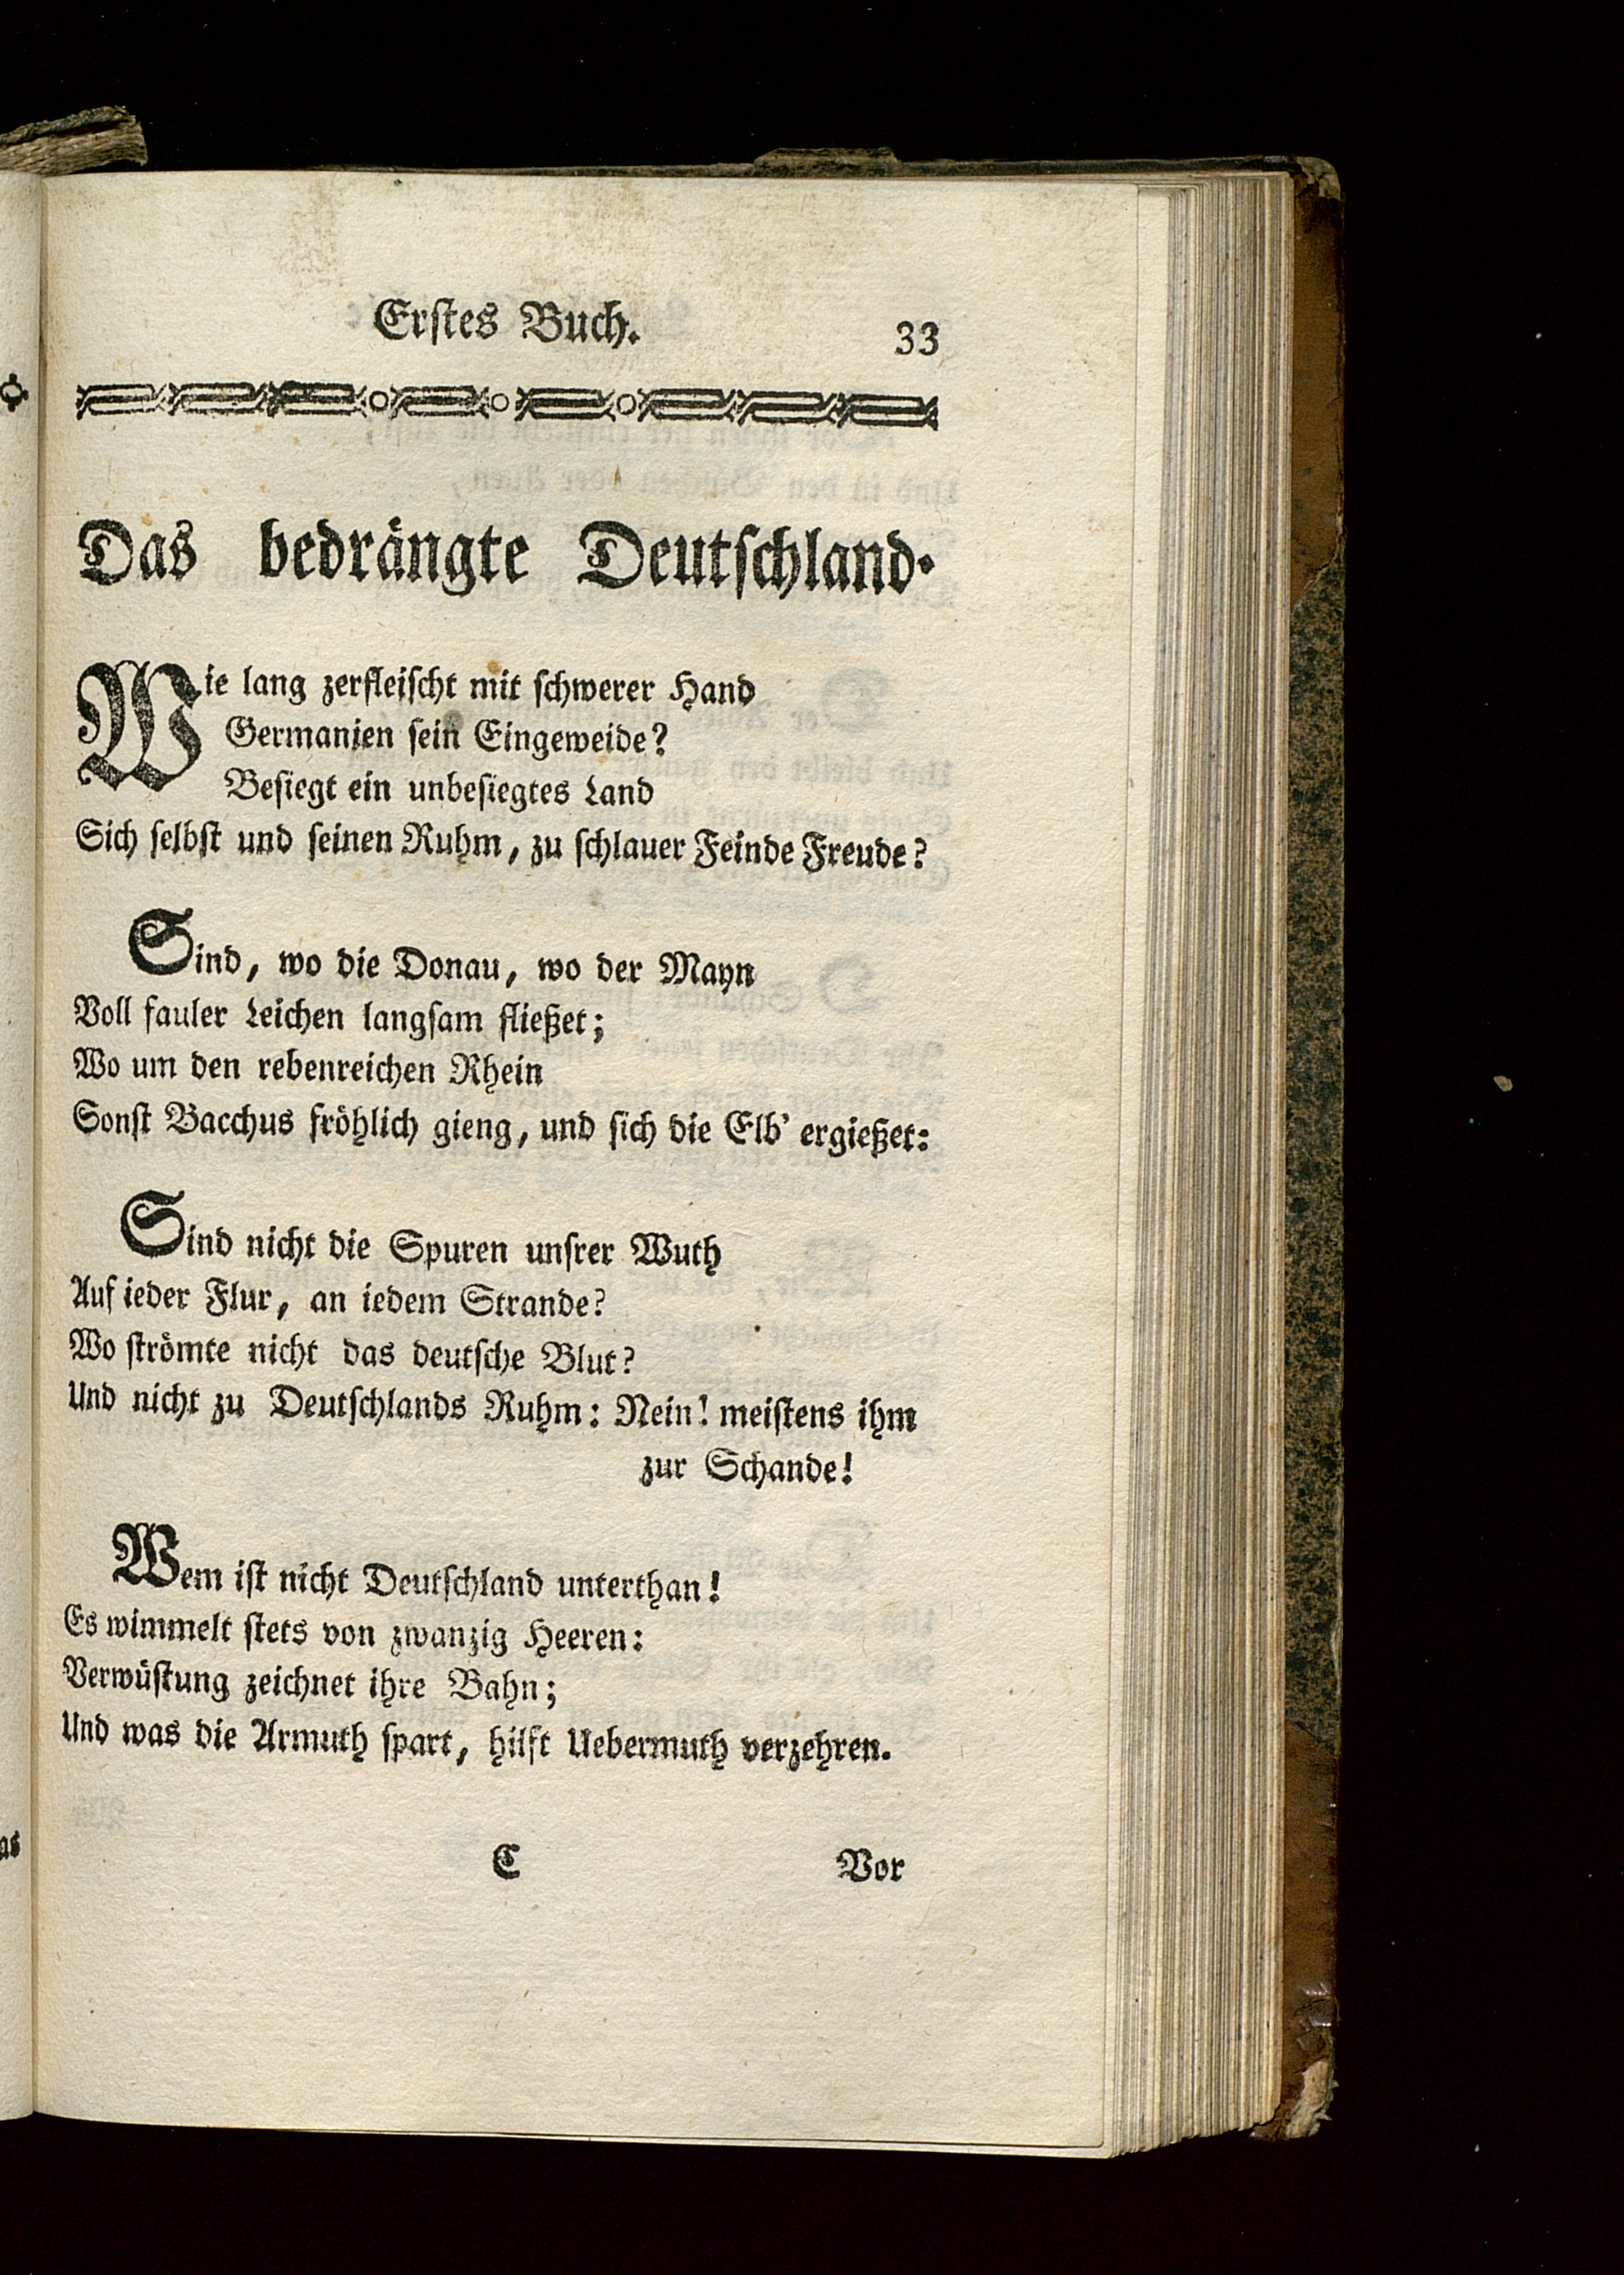 Erstes Buch. 33
Das bedrängte Deutschland.
Wie lang zerfleischt mit schwerer Hand
Germanien sein Eingeweide?
Besiegt ein unbesiegtes Land
Sich selbst und seinen Ruhm, zu schlauer Feinde Freude?
Sind, wo die Donau, wo der Mayn
Voll fauler Leichen langsam fließet;
Wo um den rebenreichen Rhein
Sonst Bacchus fröhlich gieng, und sich die Elb' ergießet:
Sind nicht die Spuren unsrer Wuth
Auf ieder Flur, an iedem Strande?
Wo strömte nicht das deutsche Blut?
Und nicht zu Deutschlands Ruhm: Nein! meistens ihm
zur Schande!
Wem ist nicht Deutschland unterthan!
Es wimmelt stets von zwanzig Heeren:
Verwüstung zeichnet ihre Bahn;
Und was die Armuth spart, hilft Uebermuth verzehren.
as
C Vor